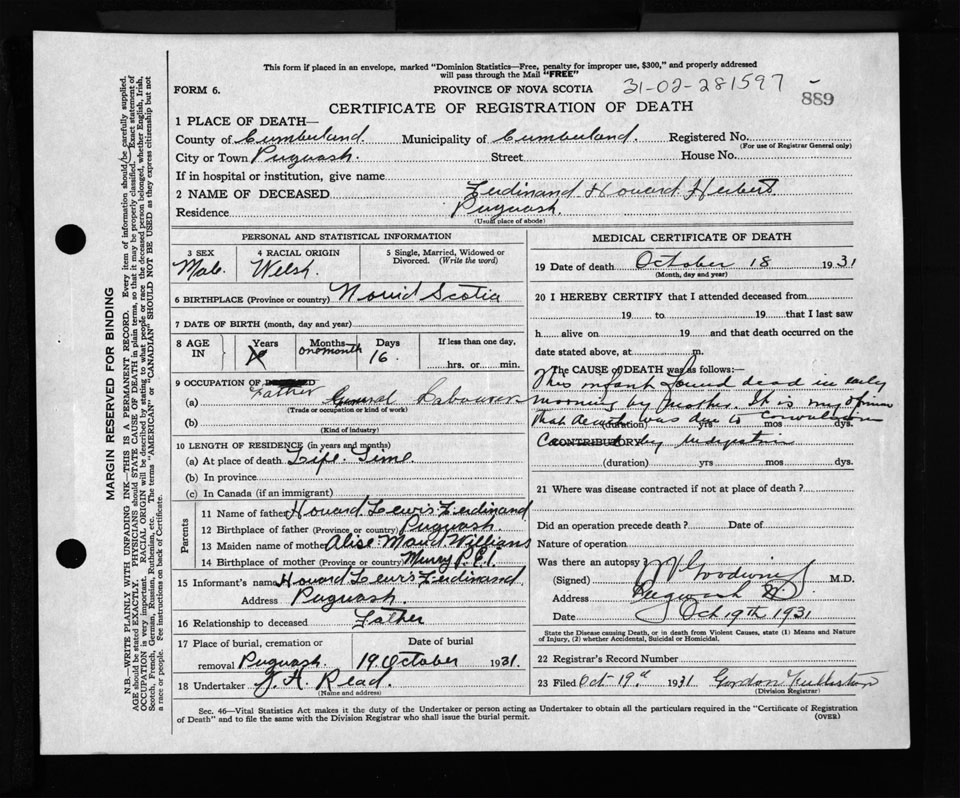 This form if placed in an envelope, marked "Dominion Statistics—Free, penalty for improper use, $300," and properly addressed
will pass through the Mail "FREE"
FORM 6.
PROVINCE OF NOVA SCOTIA
31-02-281597
889
CERTIFICATE OF REGISTRATION OF DEATH
1 PLACE OF DEATH—
County of Cumberland Municipality of Cumberland. Registered No.
(For use of Registrar General only)
City or Town Pugwash. Street House No.
If in hospital or institution, give name
2 NAME OF DECEASED Ferdinand Howard Herbert
Residence Pugwash.
(Usual place of abode)
PERSONAL AND STATISTICAL INFORMATION
3 SEX Male.
4 RACIAL ORIGIN Welsh.
5 Single, Married, Widowed or Divorced. (Write the word)
6 BIRTHPLACE (Province or country) Nova Scotia
7 DATE OF BIRTH (month, day and year)
8 AGE IN Years Months one month Days 16. If less than one day, hrs. or min.
9 OCCUPATION OF Father
(a) General Labourer
(Trade or occupation or kind of work)
(b)
(Kind of industry)
10 LENGTH OF RESIDENCE (in years and months)
(a) At place of death Life-Time.
(b) In province
(c) In Canada (if an immigrant)
Parents
11 Name of father Howard Lewis Ferdinand
12 Birthplace of father (Province or country) Pugwash.
13 Maiden name of mother Alise Maud Williams
14 Birthplace of mother (Province or country) P.E.I.
15 Informant's name Howard Lewis Ferdinand
Address Pugwash.
16 Relationship to deceased Father
17 Place of burial, cremation or Date of burial
removal Pugwash. 19 October 1931.
18 Undertaker J. A. Read.
(Name and address)
MEDICAL CERTIFICATE OF DEATH
19 Date of death October 18 1931
(Month, day and year)
20 I HEREBY CERTIFY that I attended deceased from
19 to 19 that I last saw
h alive on 19 and that death occurred on the
date stated above, at m.
The CAUSE of DEATH was as follows:—
This infant found dead in early
morning by mother. It is my opinion
that death was due to Convulsion
(duration) yrs mos dys.
CONTRIBUTORY
Caused by Indigestion
(duration) yrs mos dys.
21 Where was disease contracted if not at place of death?
Did an operation precede death? Date of
Nature of operation
Was there an autopsy?
(Signed) Goodwin M.D.
Address Pugwash
Date Oct 19th 1931
State the Disease causing Death, or in death from Violent Causes, state (1) Means and Nature
of Injury, (2) whether Accidental, Suicidal or Homicidal.
22 Registrar's Record Number
23 Filed Oct 19th 1931 Gordon
(Division Registrar)
Sec. 46—Vital Statistics Act makes it the duty of the Undertaker or person acting as Undertaker to obtain all the particulars required in the "Certificate of Registration
of Death" and to file the same with the Division Registrar who shall issue the burial permit.
(OVER)
MARGIN RESERVED FOR BINDING
N.B.—WRITE PLAINLY WITH UNFADING INK—THIS IS A PERMANENT RECORD. Every item of information should be carefully supplied.
AGE should be stated EXACTLY. PHYSICIANS should STATE CAUSE OF DEATH in plain terms, so that it may be properly classified. Exact statement of
OCCUPATION is very important. RACIAL ORIGIN will be described by stating to what people or race the deceased person belonged, whether English, Irish,
Scotch, French, German, Russian, Ruthenian, etc. The terms "AMERICAN" or "CANADIAN" SHOULD NOT BE USED as they express citizenship but not
a race or people. See instructions on back of Certificate.